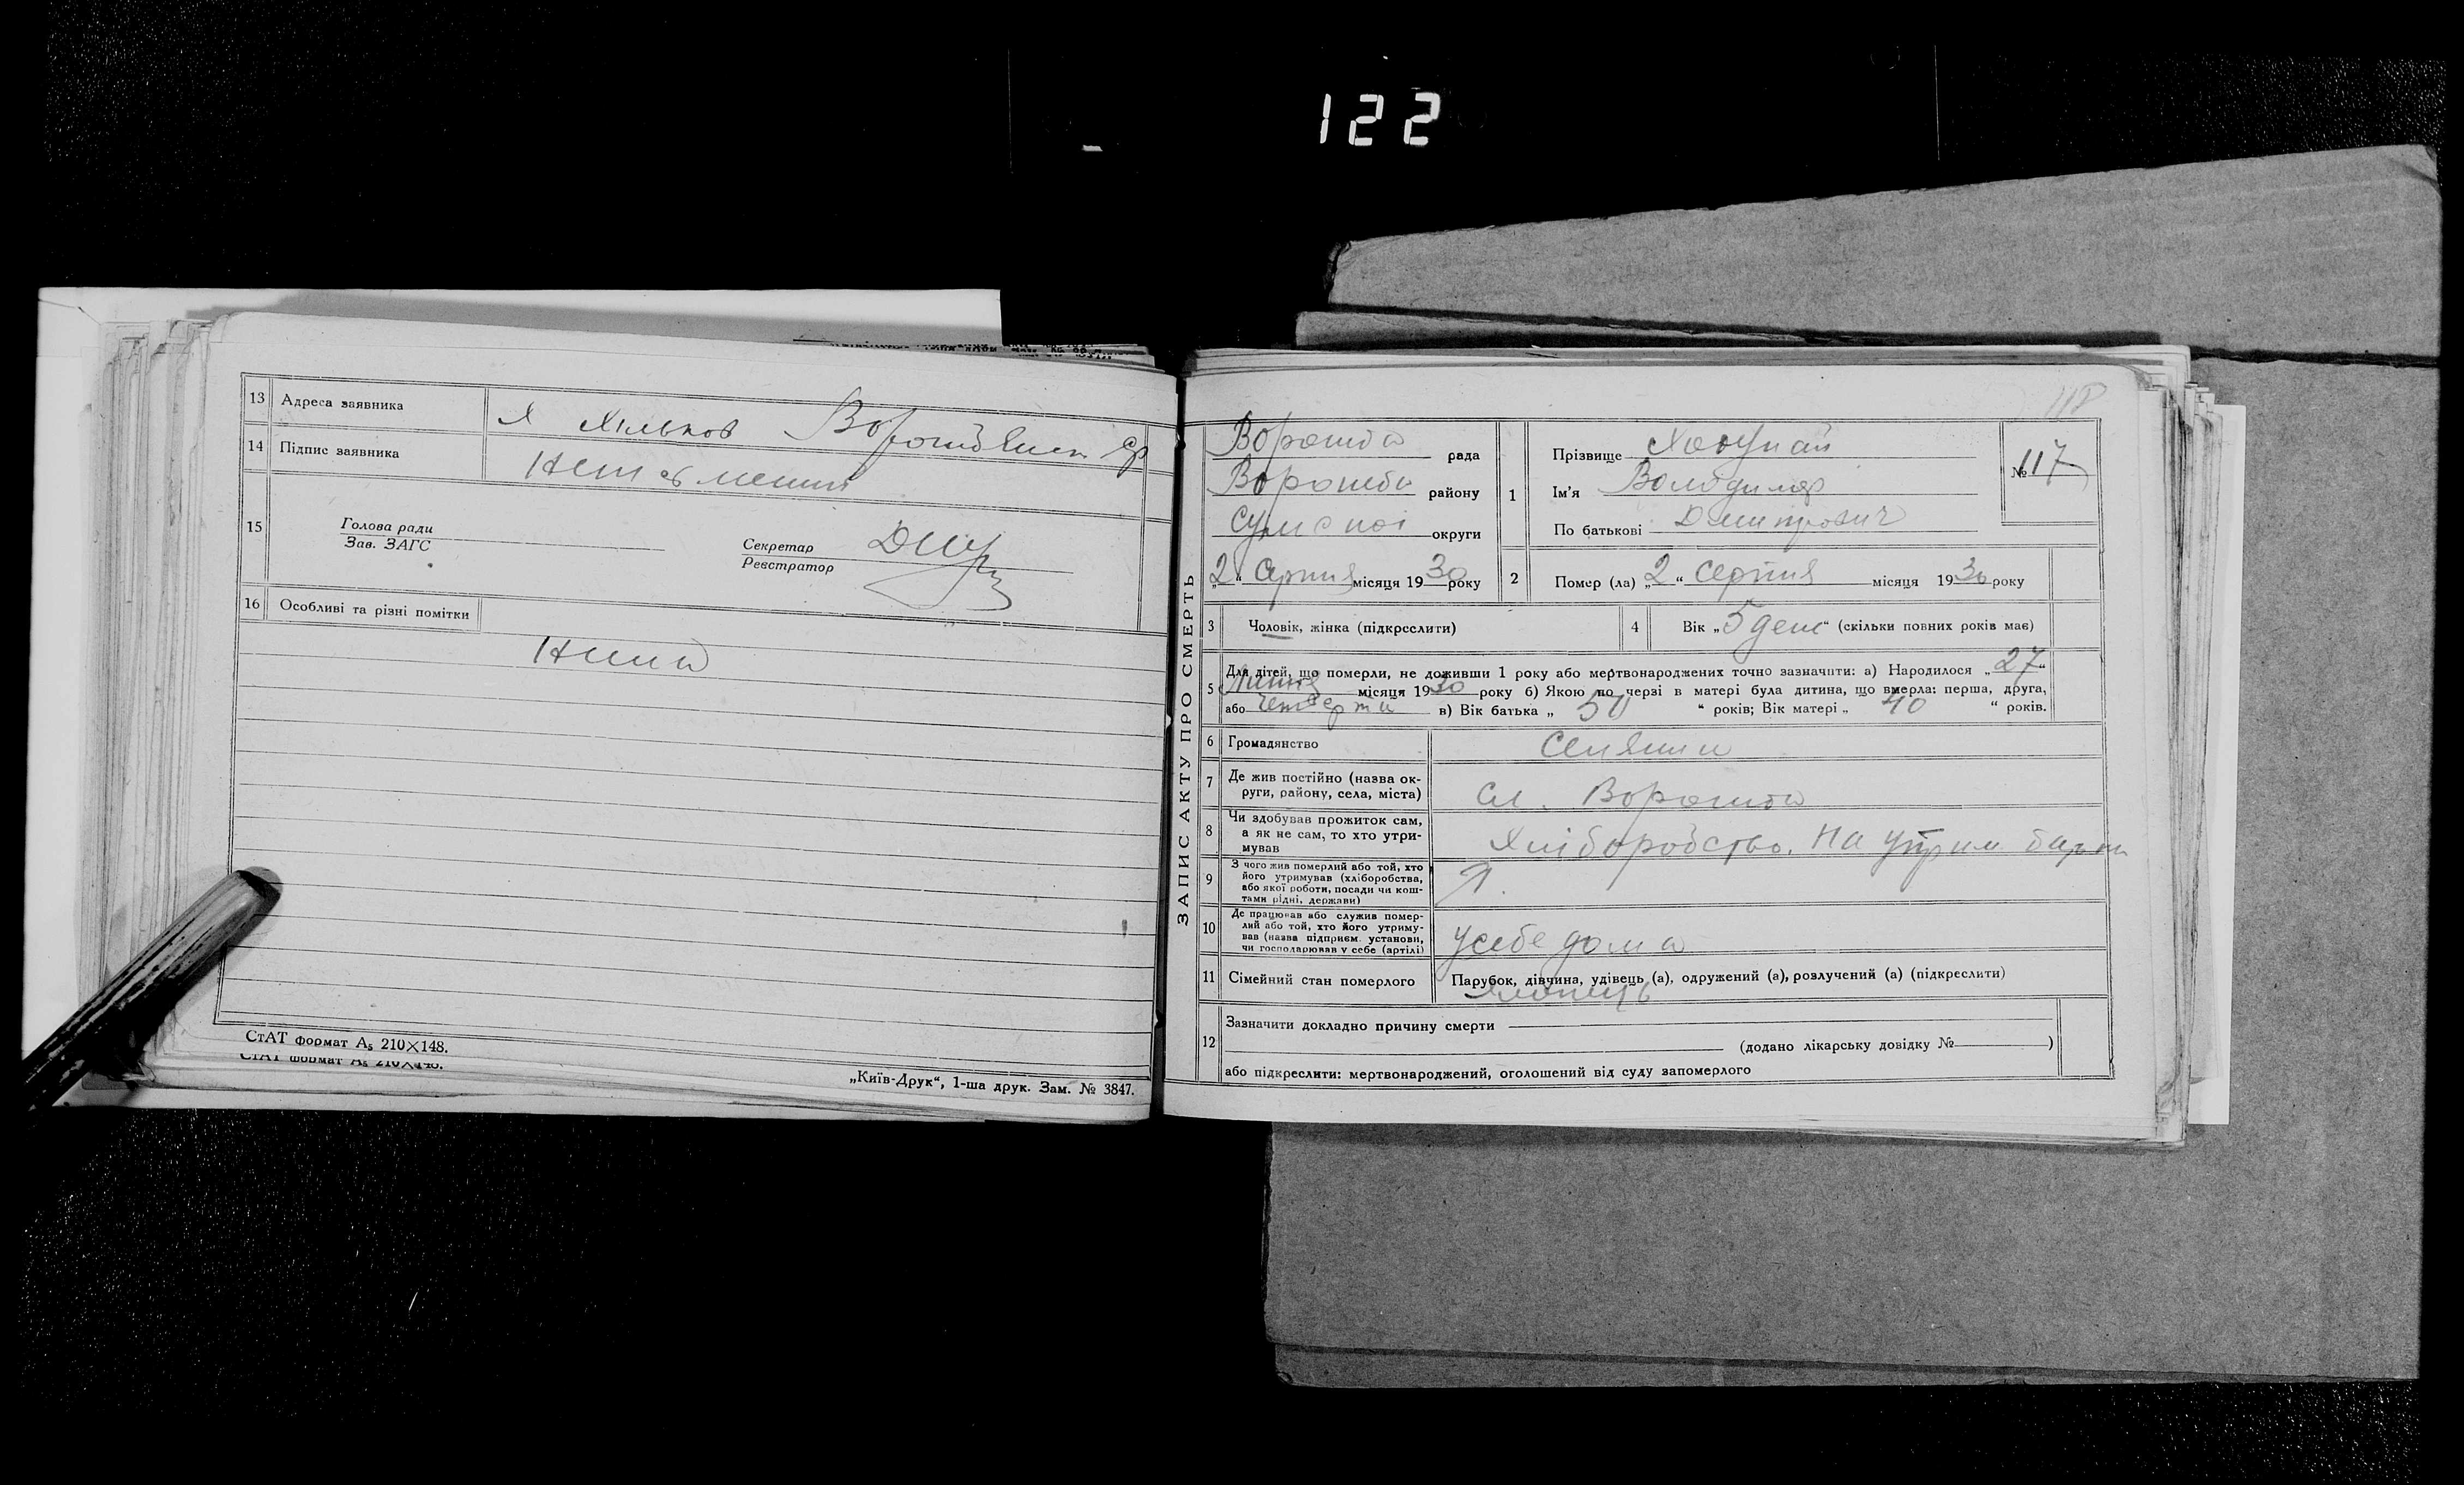 122
13 Адреса заявника
Х Хильков
14 Підпис заявника
15
Голова ради
Зав. ЗАГС
Секретар
Реєстратор
16 Особливі та різні помітки
СтАТ формат А₅ 210×148.
СтАТ формат А₅ 210×148.
„Київ-Друк“, 1-ша друк. Зам. № 3847.
118
ЗАПИС АКТУ ПРО СМЕРТЬ
Ворожба рада
Ворожба району
Сумської округи
„2“ Серпня місяця 1930 року
1
Прізвище
Ім'я Володимир
По батькові Дмитрович
№ 117
2 Помер (ла) „2“ Серпня місяця 1930 року
3 Чоловік, жінка (підкреслити)
4 Вік „5 ден“ (скільки повних років має)
5 Для дітей, що померли, не доживши 1 року або мертвонароджених точно зазначити: а) Народилося „27“
Липня місяця 1930 року б) Якою по черзі в матері була дитина, що вмерла: перша, друга,
або четверта в) Вік батька „50“ років; Вік матері „40“ років.
6 Громадянство Селянин
7 Де жив постійно (назва ок-
руги, району, села, міста)
сл. Ворожба
8 Чи здобував прожиток сам,
а як не сам, то хто утри-
мував
Хліборобство. На утрим. батьк
9 З чого жив померлий або той, хто
його утримував (хліборобства,
або якої роботи, посади чи кош-
тами рідні, держави)
10 Де працював або служив помер-
лий або той, хто його утриму-
вав (назва підприєм. установи,
чи господарював у себе (артілі)
усебе дома
11 Сімейний стан померлого
Парубок, дівчина, удівець (а), одружений (а), розлучений (а) (підкреслити)
хлопець
12 Зазначити докладно причину смерти
(додано лікарську довідку № )
або підкреслити: мертвонароджений, оголошений від суду запомерлого